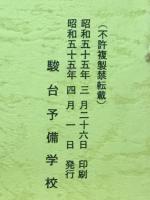 (不許複製禁転載)
昭和五十五年 三月二十六日 印刷
昭和五十五年 四月一日 発行
駿台予備学校